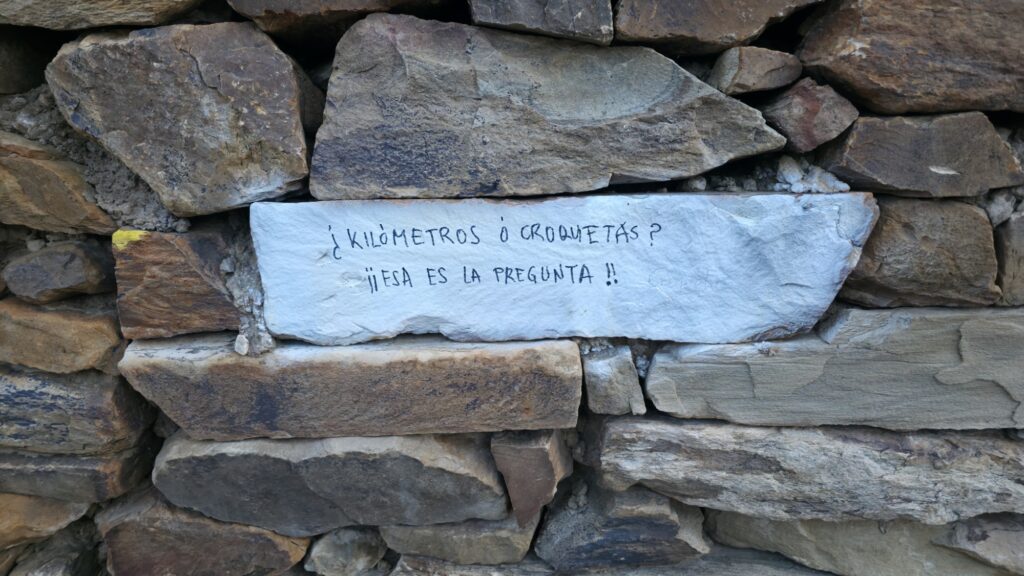 ¿KILÓMETROS Ó CROQUETAS?
¡¡ESA ES LA PREGUNTA!!